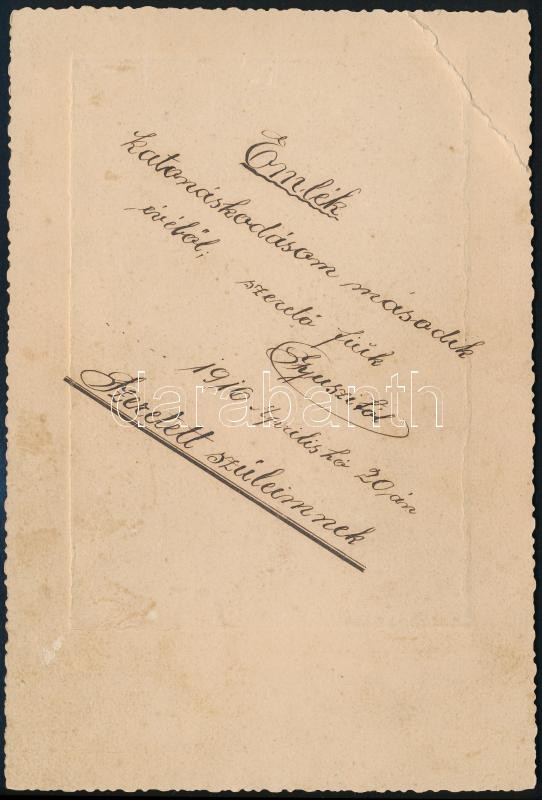 Emlék
katonáskodásom második
évéből;
szerető fiúk
Gyuszitól
1916 április hó 20,án
Szeretett szüleimnek
darabanth